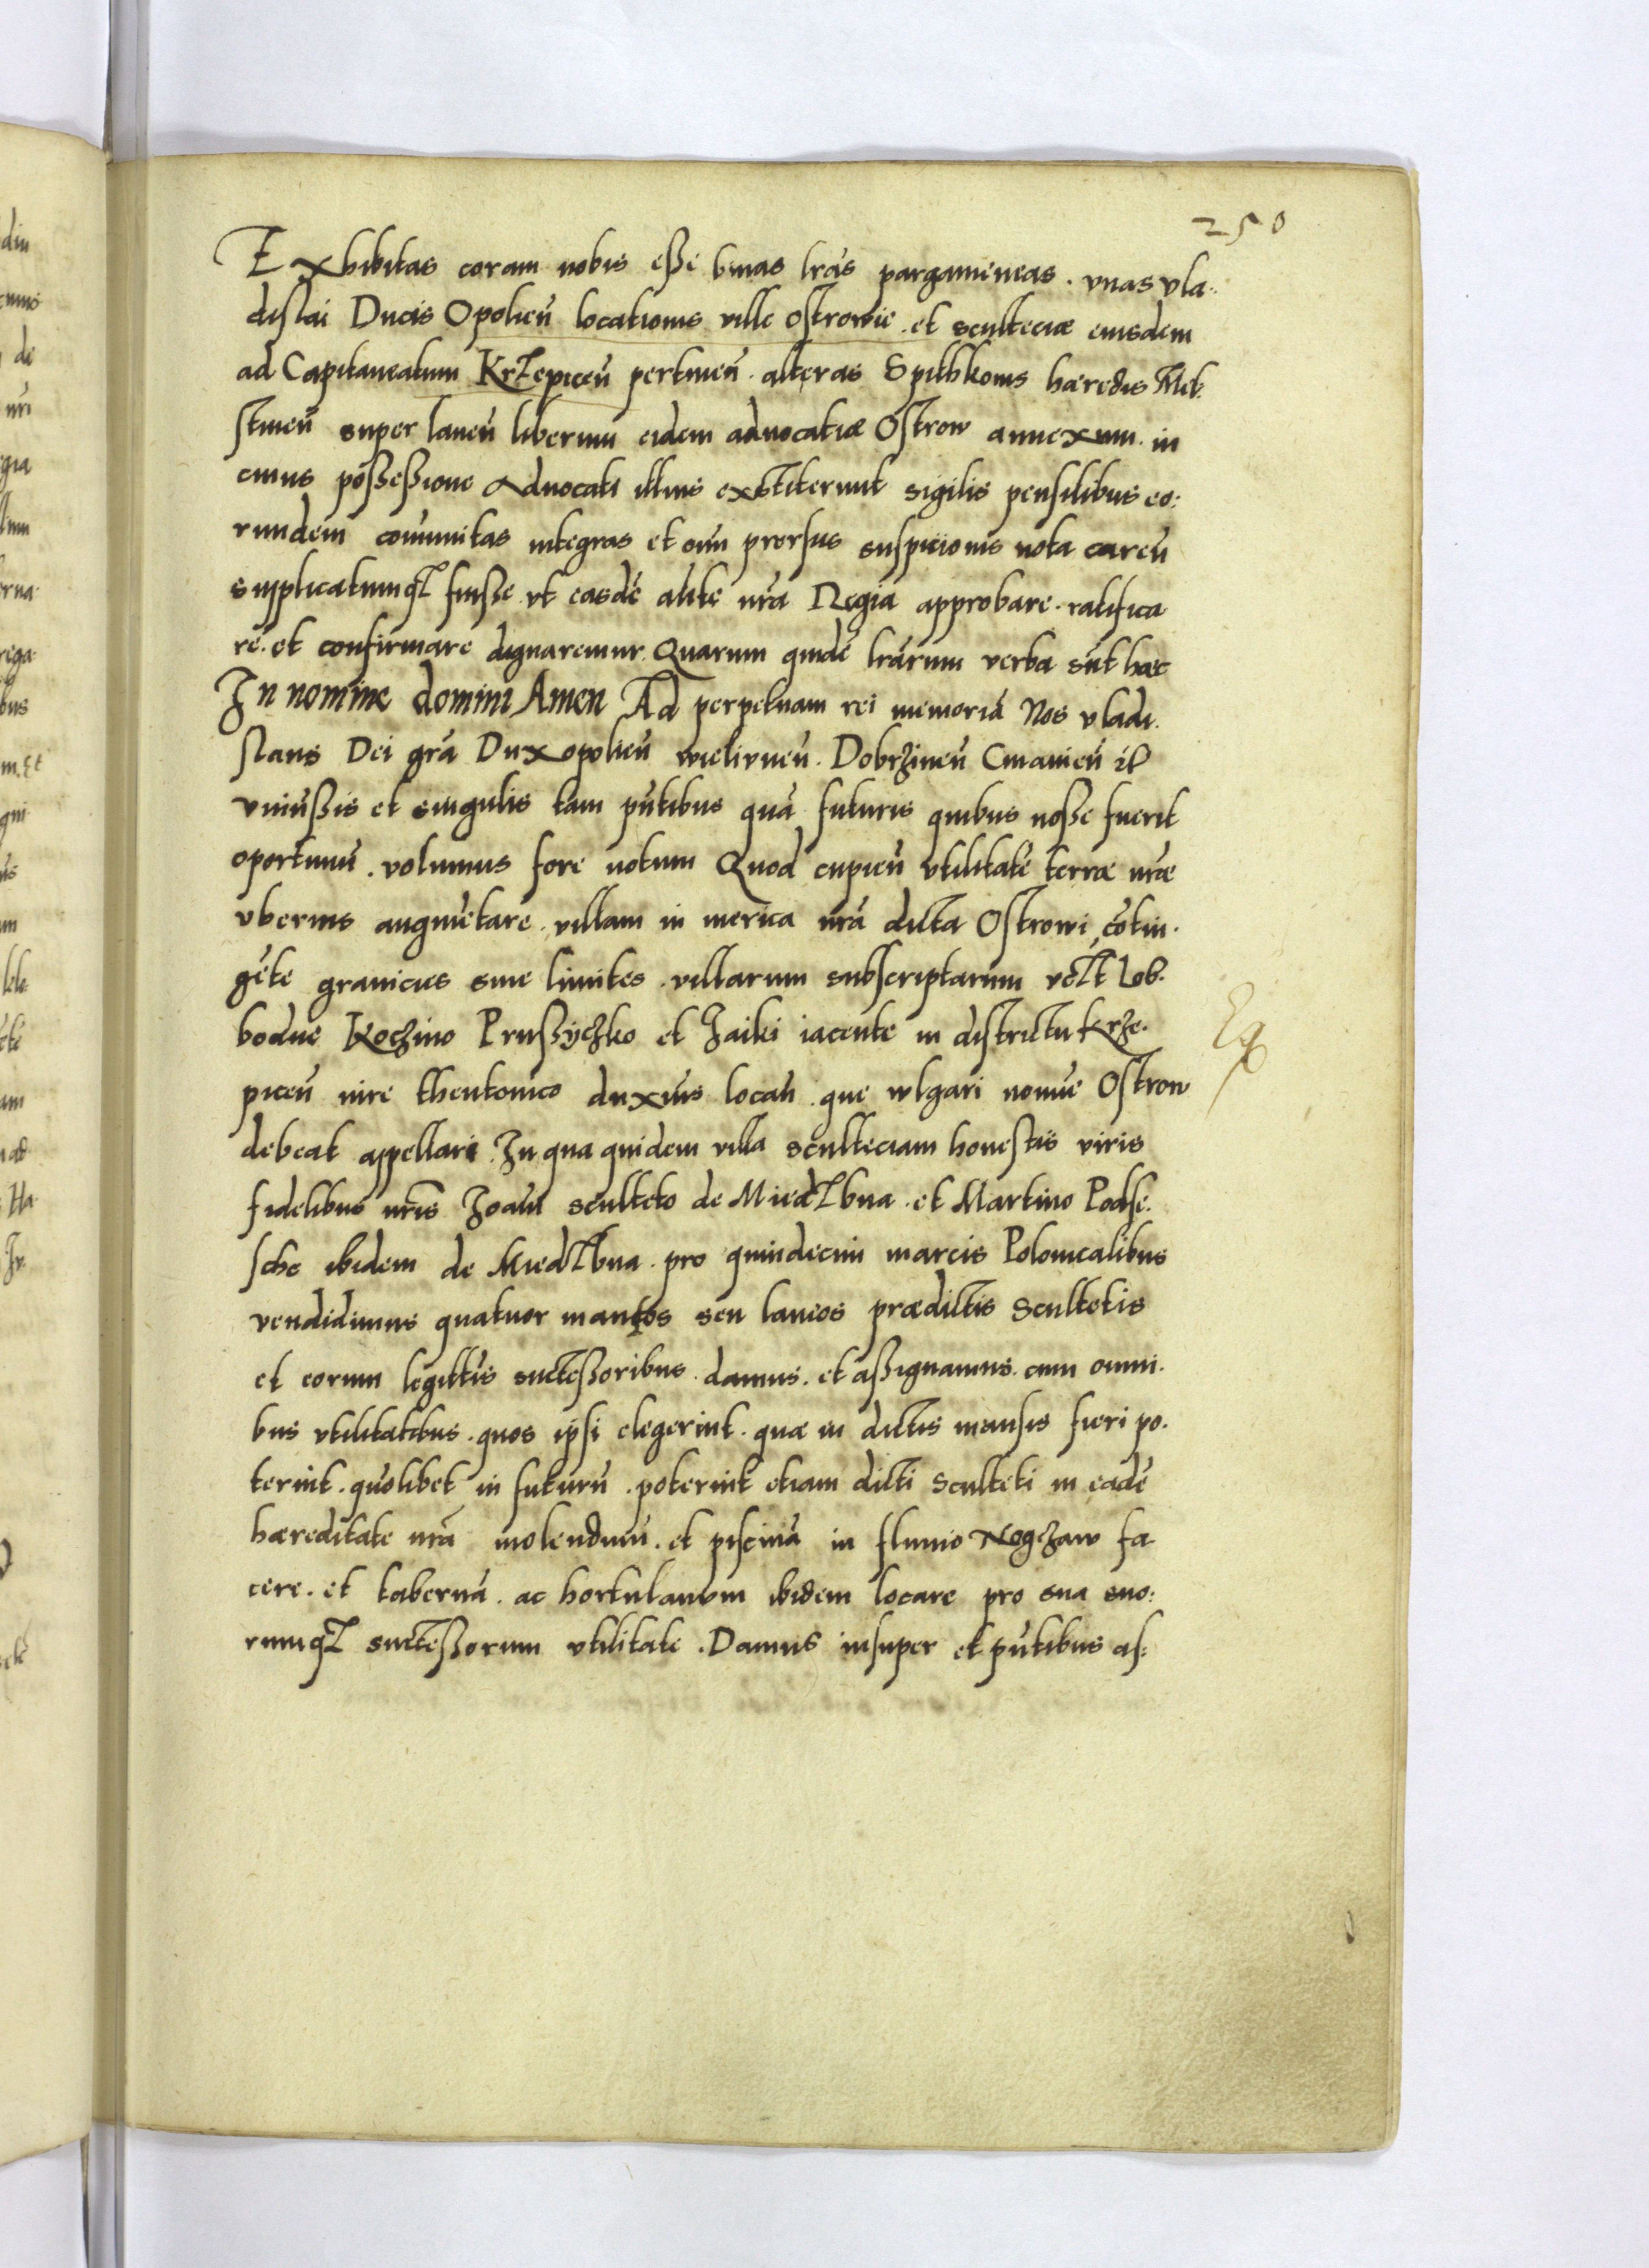 250
Exhibitas coram nobis esse binas lr̃as pargameneas . vnas vla-
dislai Ducis Opolieñ locationis ville ostrowie . et sculteciæ eiusdem
ad Capitaneatum Krzepiceñ pertineñ . alteras Spithkonis hæredis Mel-
stineñ super laneũ liberum eidem aduocatiæ Ostrow annexum . in
cuius possessione Aduocati illius exstiterunt sigilis pensilibus eo:
rundem com̃unitas integras et om̃i prorsus suspicionis nota careñ
supplicatumqʒ fuisse vt easdẽ alite nr̃a Regia approbare . ratifica
re . et confirmare dignaremur Quarum quidẽ lr̃arum verba sũt hæc
In nomine domini Amen Ad perpetuam rei memoriã Nos vladi-
slaus Dei gr̃a Dux opolieñ wieliuneñ . Dobrzineñ Cuiauieñ
Vniũssis et singulis tam pũtibus quã futuris quibus nosse fuerit
oportunũ . volumus fore notum Quod cupieñ vtilitatẽ terræ nr̃æ
vberius augmẽtare . villam in merica nr̃a dicta Ostrowi cõtin-
gẽte granicies siue limites . villarum subscriptarum vcʒt Lob-
bodne Kochzino Prussychzko et Zaiki iacente in districtu Krze-
piceñ iure theutonico duximꝰ locañ . que wlgari nomĩe Ostrow
debeat appellari . In qua quidem villa sculteciam honestis viris
fidelibus nr̃is Joañi sculteto de Miedzbna . et Martino Podse-
sche ibidem de Miedzbna . pro quindecim marcis Polonicalibus
vendidimus quatuor mansos seu laneos prædictis Scultetis
et eorum legittĩs successoribus . damus . et assignamus . cum omni-
bus vtilitatibus . quos ipsi elegerint . quæ in dictis mansis fieri po-
terint . quolibet in futurũ . poterint etiam dicti Sculteti in eadẽ
hæreditate nr̃a molendinũ . et piscinã in fluuio Nogczaw fa
cere . et tabernã . ac hortulanum ibidem locare pro sua suo:
rumqʒ successorum vtilitate . Damus insuper et pũtibus as: